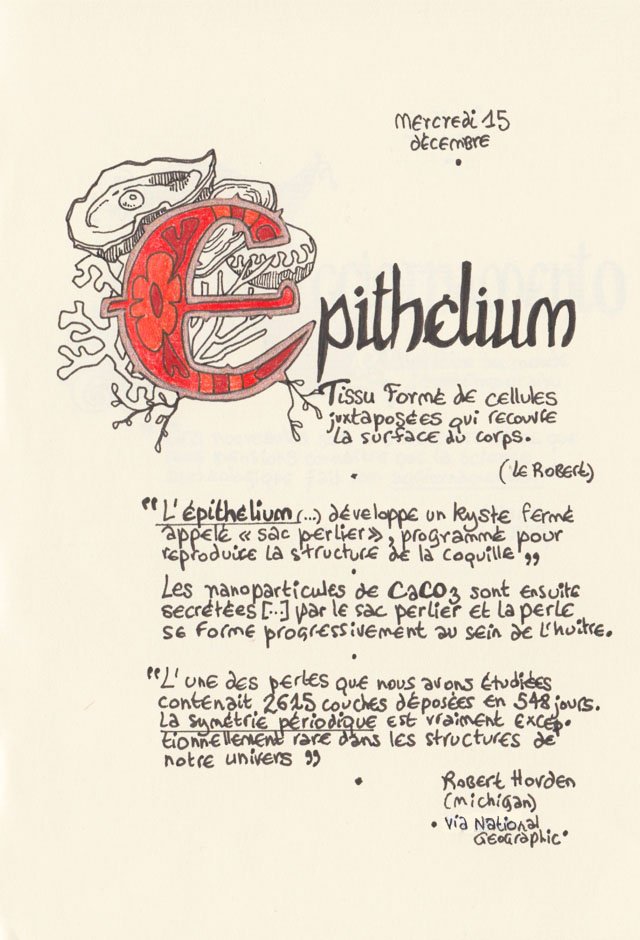 Mercredi 15
décembre
Epithelium
Tissu formé de cellules
juxtaposées qui recouvre
la surface du corps.
(Le Robert)
"L'épithélium (...) développe un kyste fermé
appelé « sac perlier », programmé pour
reproduire la structure de la coquille"
Les nanoparticules de CaCO3 sont ensuite
secrétées [...] par le sac perlier et la perle
se forme progressivement au sein de l'huître.
"L'une des perles que nous avons étudiées
contenait 2615 couches déposées en 548 jours.
La symétrie périodique est vraiment excep-
tionnellement rare dans les structures de
notre univers"
Robert Hovden
(Michigan)
via National
Geographic